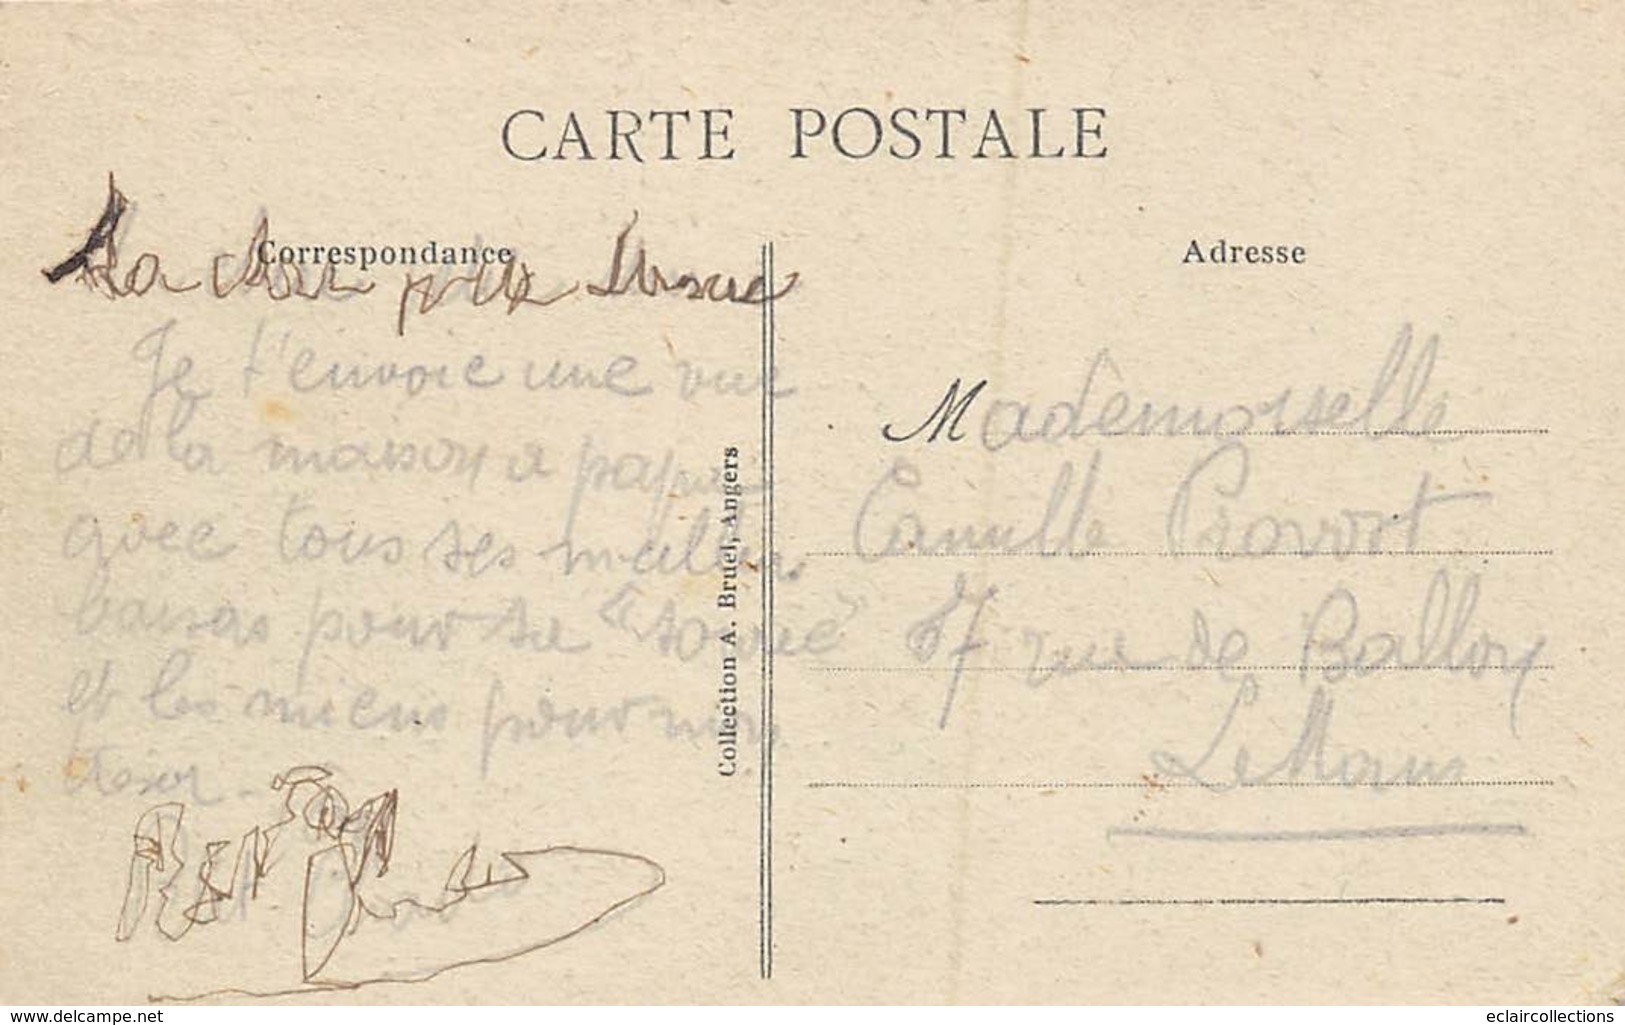 CARTE POSTALE
Correspondance
Ma chère petite
Je t'envoie une vue
de la maison a papa
avec tous ses meilleurs
baisers pour sa "
et les miens pour mon
trésor.
Collection A. Bruel, Angers
Adresse
Mademoiselle
Camille Provost
57 rue de Ballon
Le Mans
www.delcampe.net
eclaircollections